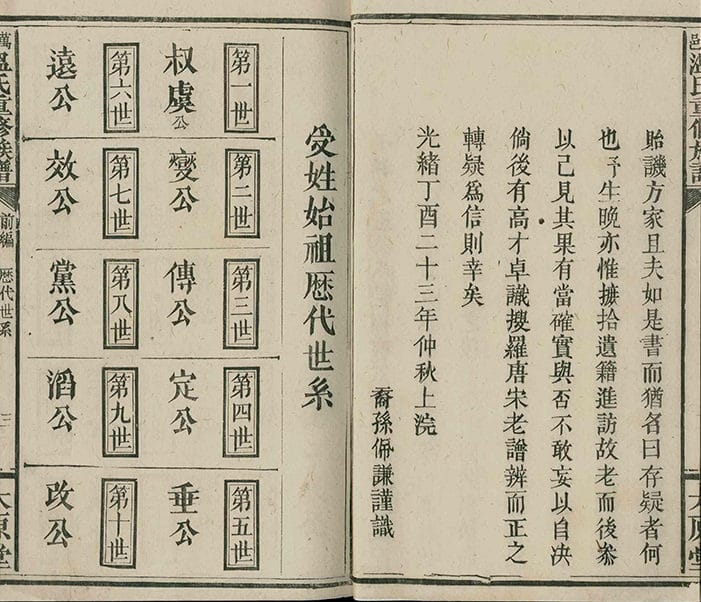 邑溫氏重修族譜
太原堂
貽譏方家且夫如是書而猶名曰存疑者何
也予生晚亦惟摭拾遺籍進訪故老而後叅
以己見其果有當確實與否不敢妄以自決
倘後有高才卓識搜羅唐宋老譜辨而正之
轉疑爲信則幸矣
光緒丁酉二十三年仲秋上浣
裔孫佩謙謹識
受姓始祖歴代世系
第一世
叔虞公
第二世
變公
第三世
傳公
第四世
定公
第五世
垂公
第六世
遠公
第七世
效公
第八世
黨公
第九世
滔公
第十世
改公
萬
溫氏重修族譜
前編
歴代世系
三
太原堂